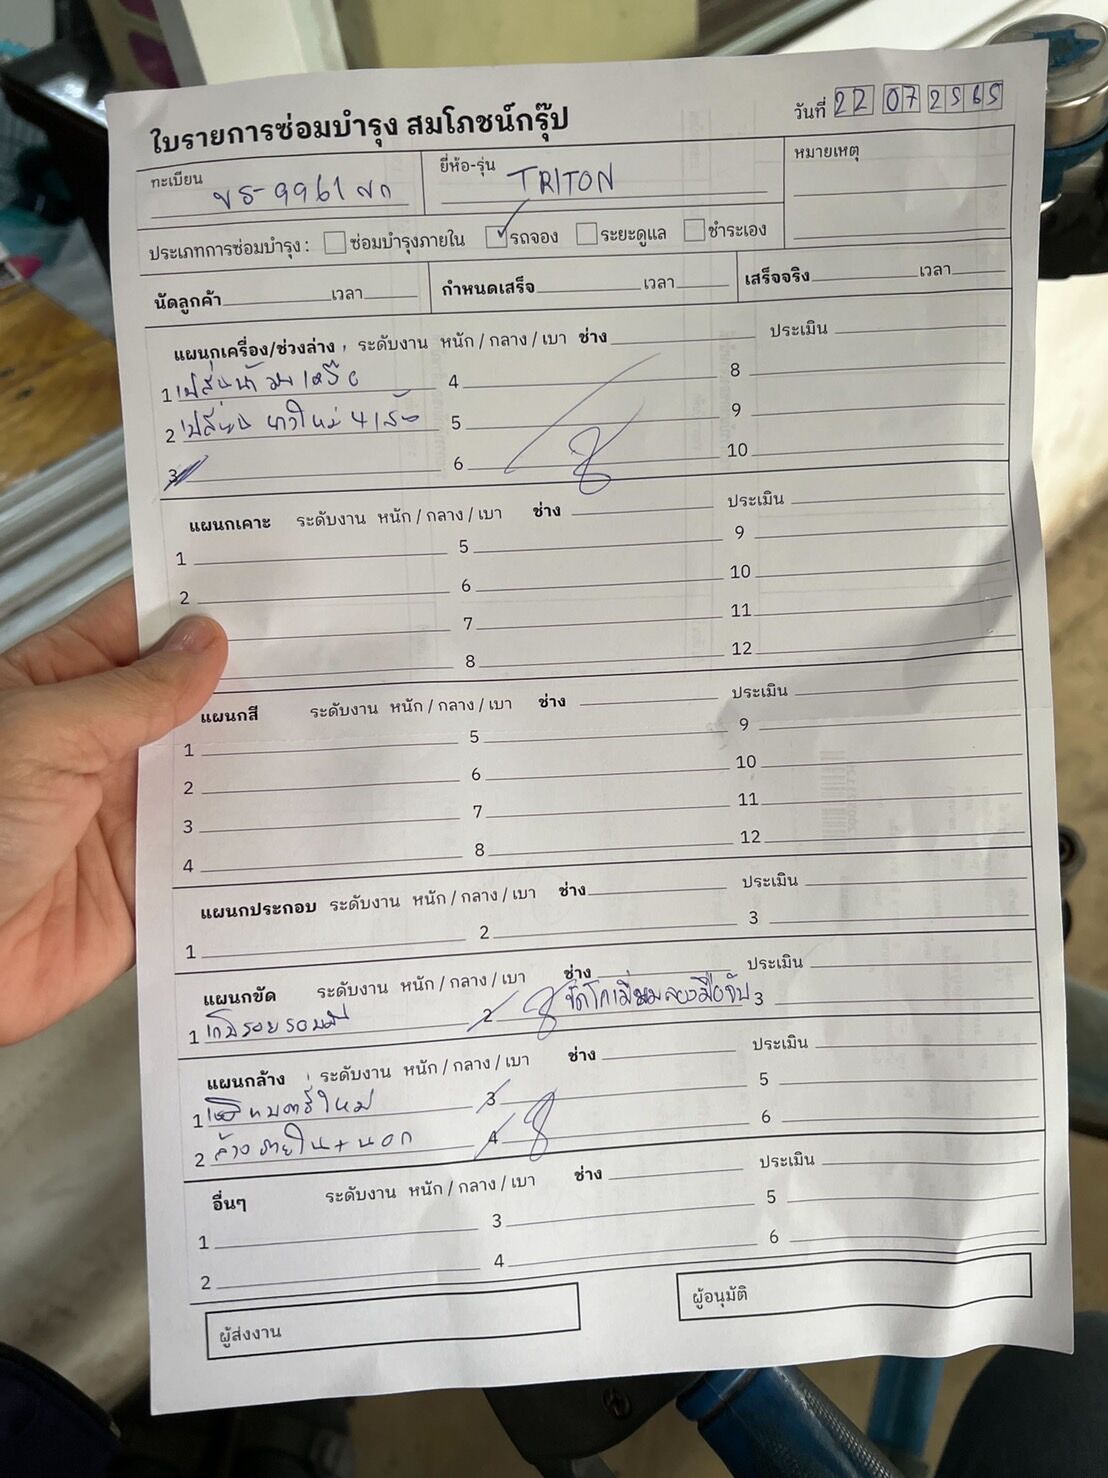 ใบรายการซ่อมบำรุง สมโภชน์กรุ๊ป
วันที่ 22 07 2565
ทะเบียน ขธ-9961 สก
ยี่ห้อ-รุ่น TRITON
หมายเหตุ
ประเภทการซ่อมบำรุง : ซ่อมบำรุงภายใน รถจอง ระยะดูแล ชำระเอง
นัดลูกค้า เวลา กำหนดเสร็จ เวลา เสร็จจริง เวลา
แผนกเครื่อง/ช่วงล่าง ระดับงาน หนัก / กลาง / เบา ช่าง ประเมิน
1 เปลี่ยนถ่าย 4 8
2 เปลี่ยน ยางใหม่ 4 เส้น 5 9
3 6 10
แผนกเคาะ ระดับงาน หนัก / กลาง / เบา ช่าง ประเมิน
1 5 9
2 6 10
7 11
8 12
แผนกสี ระดับงาน หนัก / กลาง / เบา ช่าง ประเมิน
1 5 9
2 6 10
3 7 11
4 8 12
แผนกประกอบ ระดับงาน หนัก / กลาง / เบา ช่าง ประเมิน
1 2 3
แผนกขัด ระดับงาน หนัก / กลาง / เบา ช่าง ประเมิน
1 เก็บรอยรอบคัน 2 ขัดโคมิเนียมรองมือจับ 3
แผนกล้าง ระดับงาน หนัก / กลาง / เบา ช่าง ประเมิน
1 ใหม่ 3 5
2 ล้าง ภายใน + นอก 4 6
อื่นๆ ระดับงาน หนัก / กลาง / เบา ช่าง ประเมิน
1 3 5
2 4 6
ผู้ส่งงาน
ผู้อนุมัติ